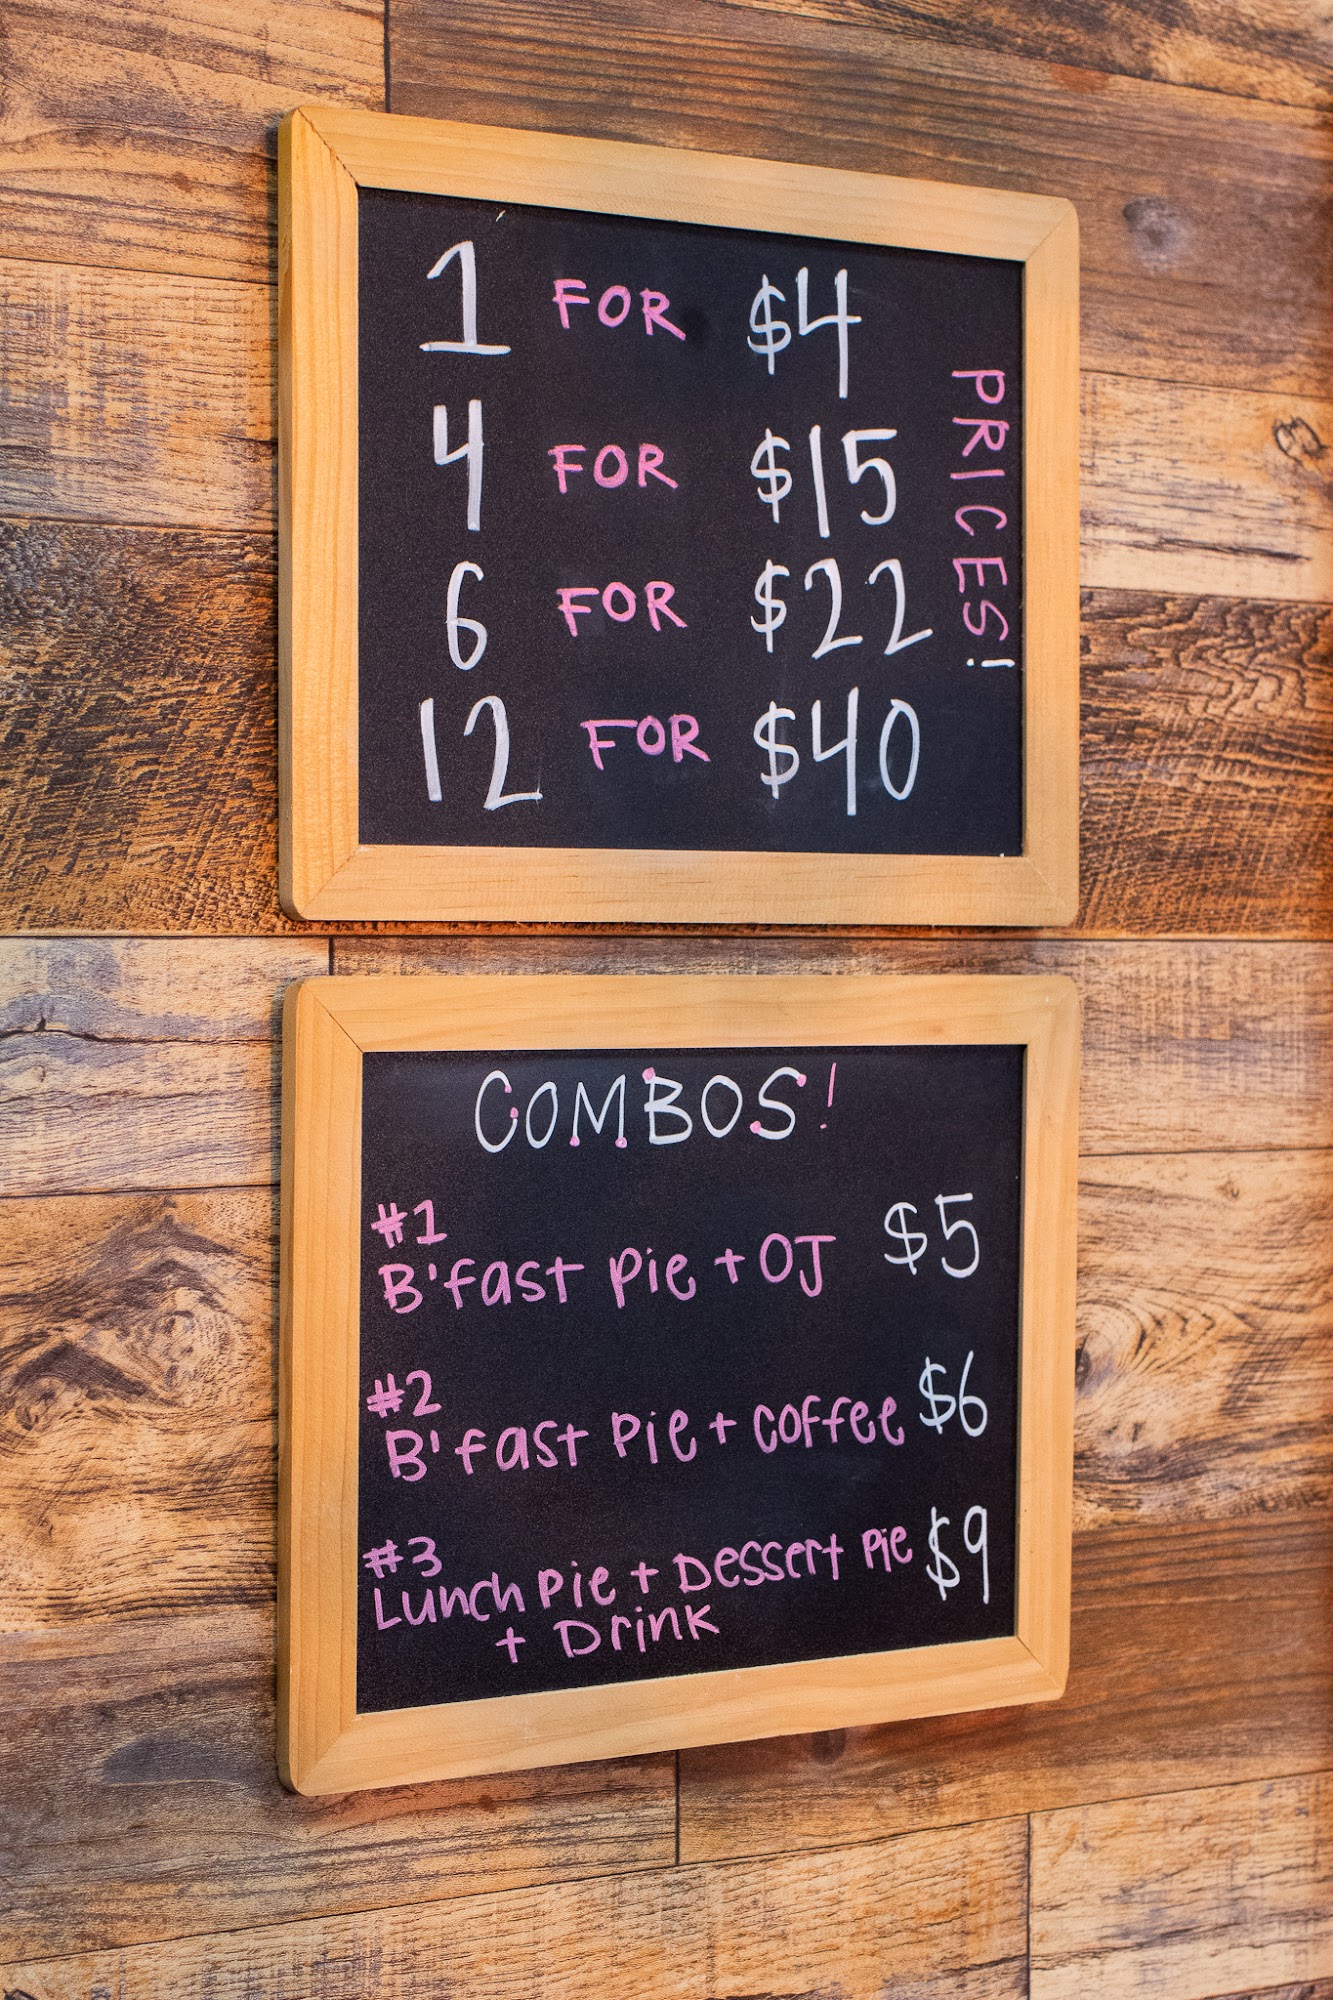 1 FOR $4
4 FOR $15
6 FOR $22
12 FOR $40
PRICES!
COMBOS!
#1
B'fast Pie + OJ $5
#2
B'fast Pie + Coffee $6
#3
Lunch Pie + Dessert Pie $9
+ Drink